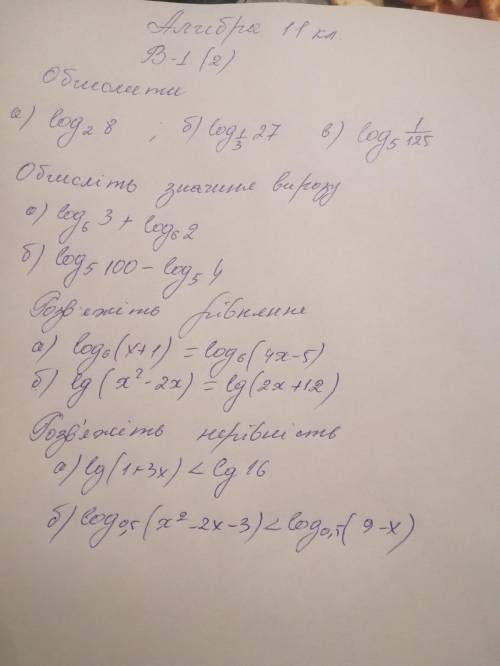 Алгебра 11 кл.
В-1 (2)
Обчислити
а) log₂ 8 ; б) log_{1/3} 27 в) log₅ 1/125
Обчисліть значення виразу
а) log₆ 3 + log₆ 2
б) log₅ 100 - log₅ 4
Розв'яжіть рівняння
а) log₆ (x+1) = log₆ (4x-5)
б) lg (x² - 2x) = lg (2x+12)
Розв'яжіть нерівність
а) lg (1+3x) < lg 16
б) log₀,₅ (x² - 2x - 3) < log₀,₅ (9 - x)